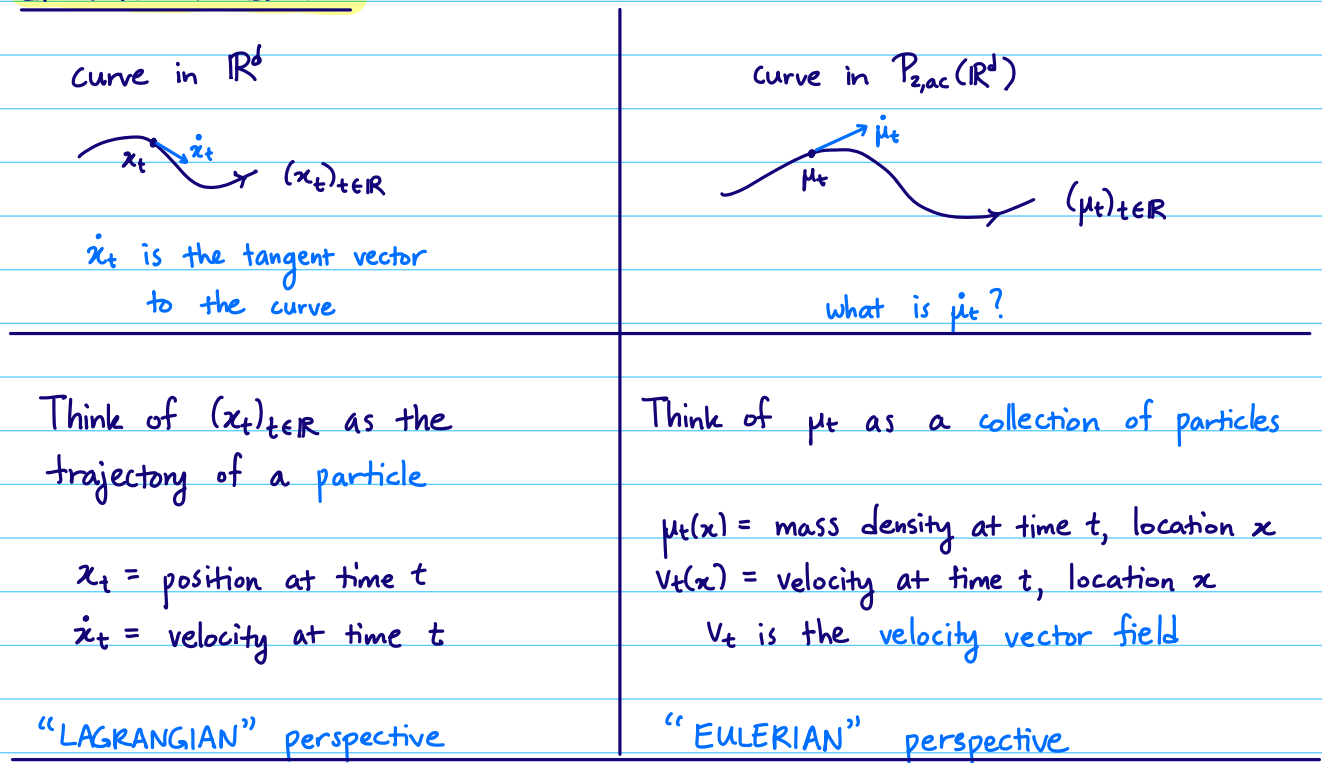 curve in ℝᵈ
xₜ
ẋₜ
(xₜ)ₜ∈ℝ
ẋₜ is the tangent vector
to the curve
curve in P₂,ac(ℝᵈ)
μ̇ₜ
μₜ
(μₜ)ₜ∈ℝ
what is μ̇ₜ?
Think of (xₜ)ₜ∈ℝ as the
trajectory of a particle
xₜ = position at time t
ẋₜ = velocity at time t
"LAGRANGIAN" perspective
Think of μₜ as a collection of particles
μₜ(x) = mass density at time t, location x
vₜ(x) = velocity at time t, location x
vₜ is the velocity vector field
"EULERIAN" perspective